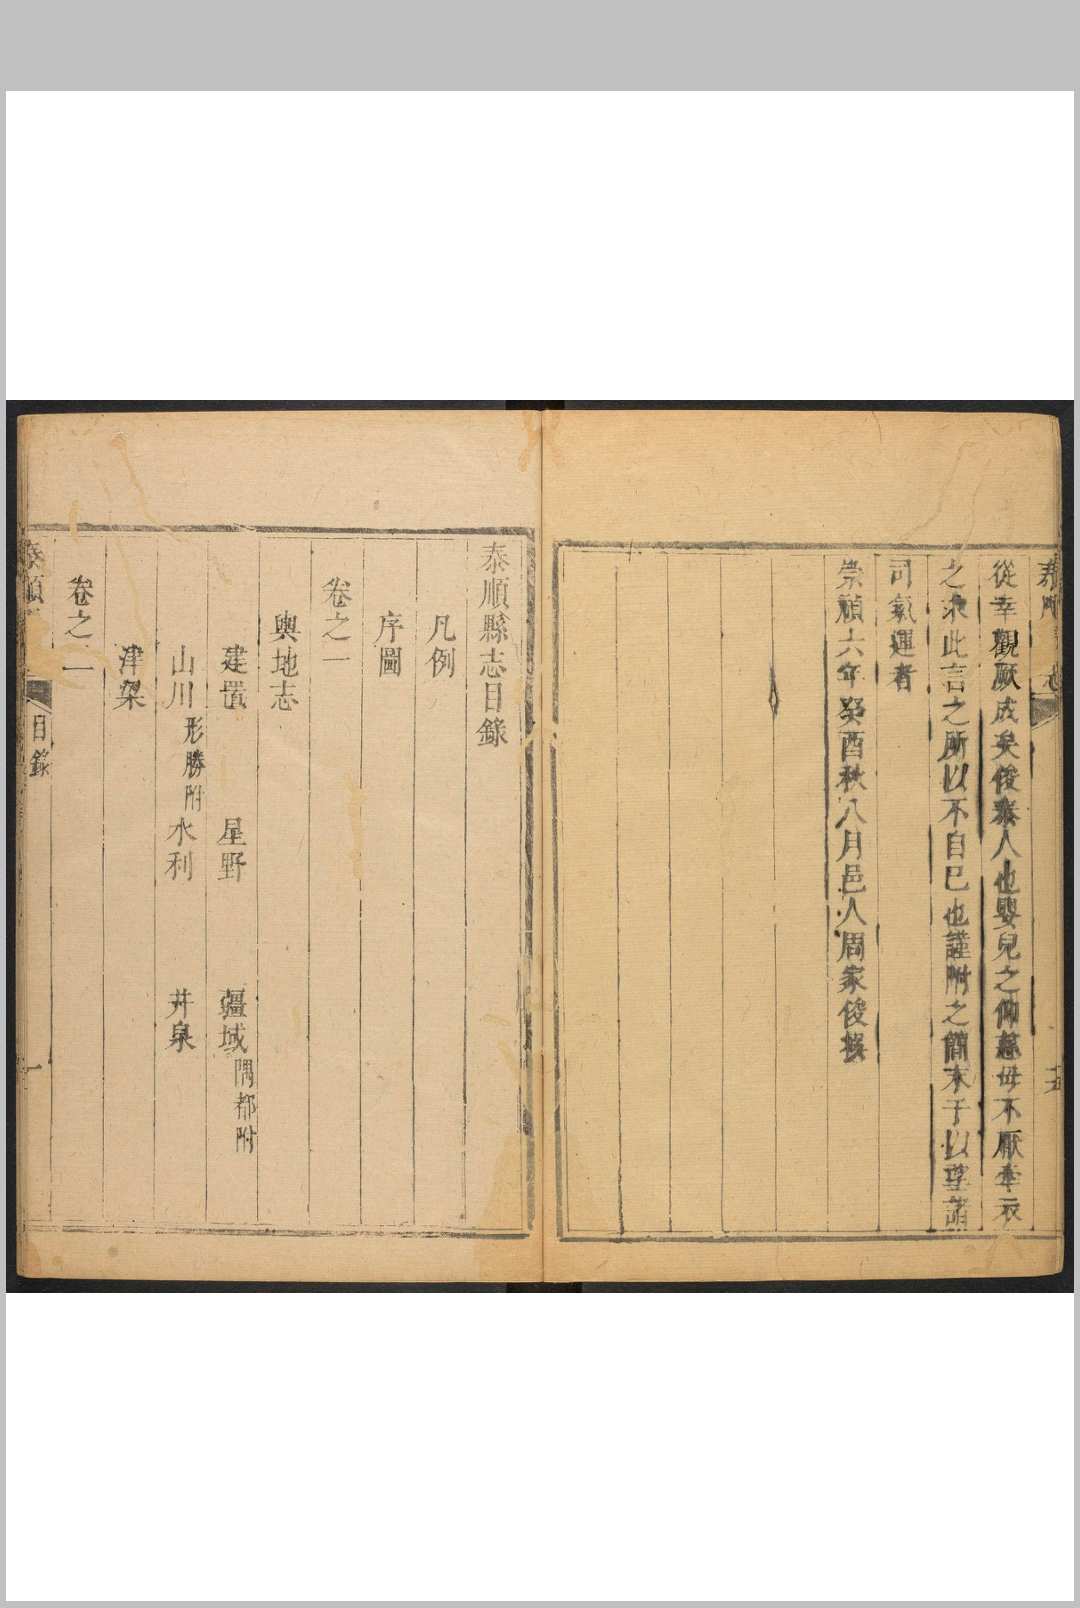 從幸觀厥成矣俊泰人也嬰兒之仰慈母不厭牽衣
之求此言之所以不自已也謹附之簡末于以望諸
司氣運者
崇禎六年癸酉秋八月邑人周家俊撰
泰順縣志目錄
凡例
序圖
卷之一
輿地志
建置 星野 疆域 隅都附
山川 形勝附 水利 井泉
津梁
卷之二
泰順
目錄
一